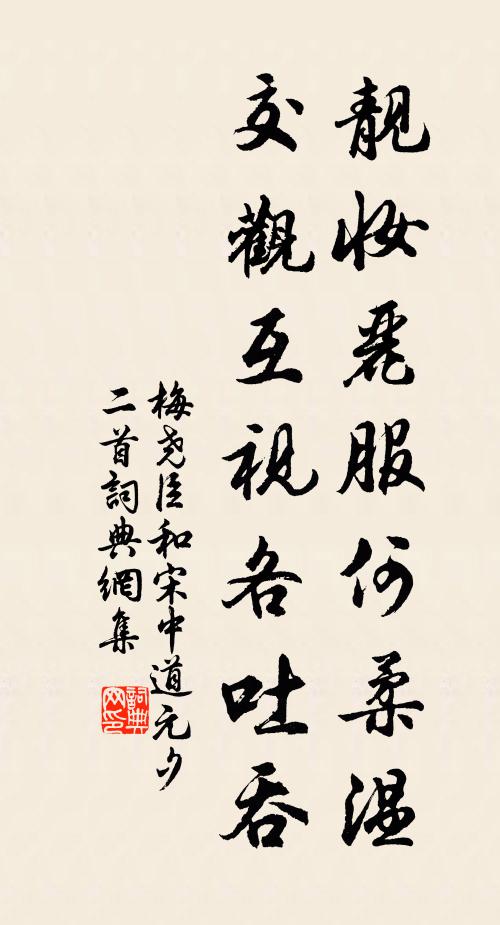 靚妝麗服何柔溫
交觀互視各吐吞
梅堯臣和宋中道元夕
二首詞典網集
詞典
网印